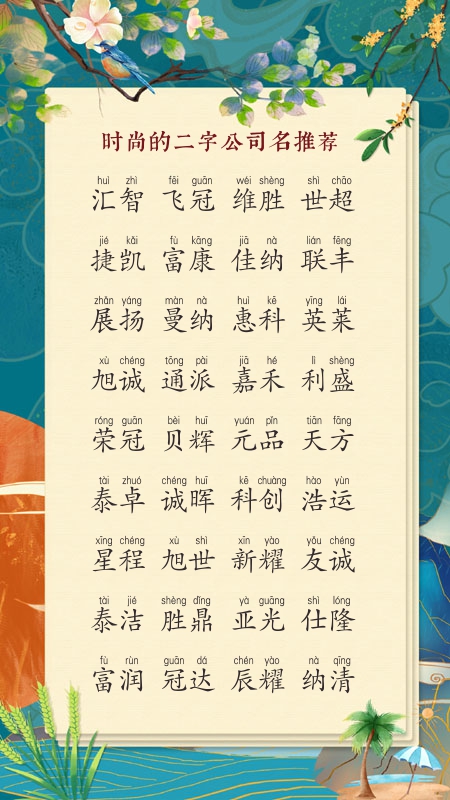 时尚的二字公司名推荐
huì zhì fēi guān wéi shèng shì chāo
汇智 飞冠 维胜 世超
jié kǎi fù kāng jiā nà lián fēng
捷凯 富康 佳纳 联丰
zhǎn yáng màn nà huì kē yīng lái
展扬 曼纳 惠科 英莱
xù chéng tōng pài jiā hé lì shèng
旭诚 通派 嘉禾 利盛
róng guān bèi huī yuán pǐn tiān fāng
荣冠 贝辉 元品 天方
tài zhuó chéng huī kē chuàng hào yùn
泰卓 诚晖 科创 浩运
xīng chéng xù shì xīn yào yǒu chéng
星程 旭世 新耀 友诚
tài jié shèng dǐng yà guāng shì lóng
泰洁 胜鼎 亚光 仕隆
fù rùn guān dá chén yào nà qīng
富润 冠达 辰耀 纳清